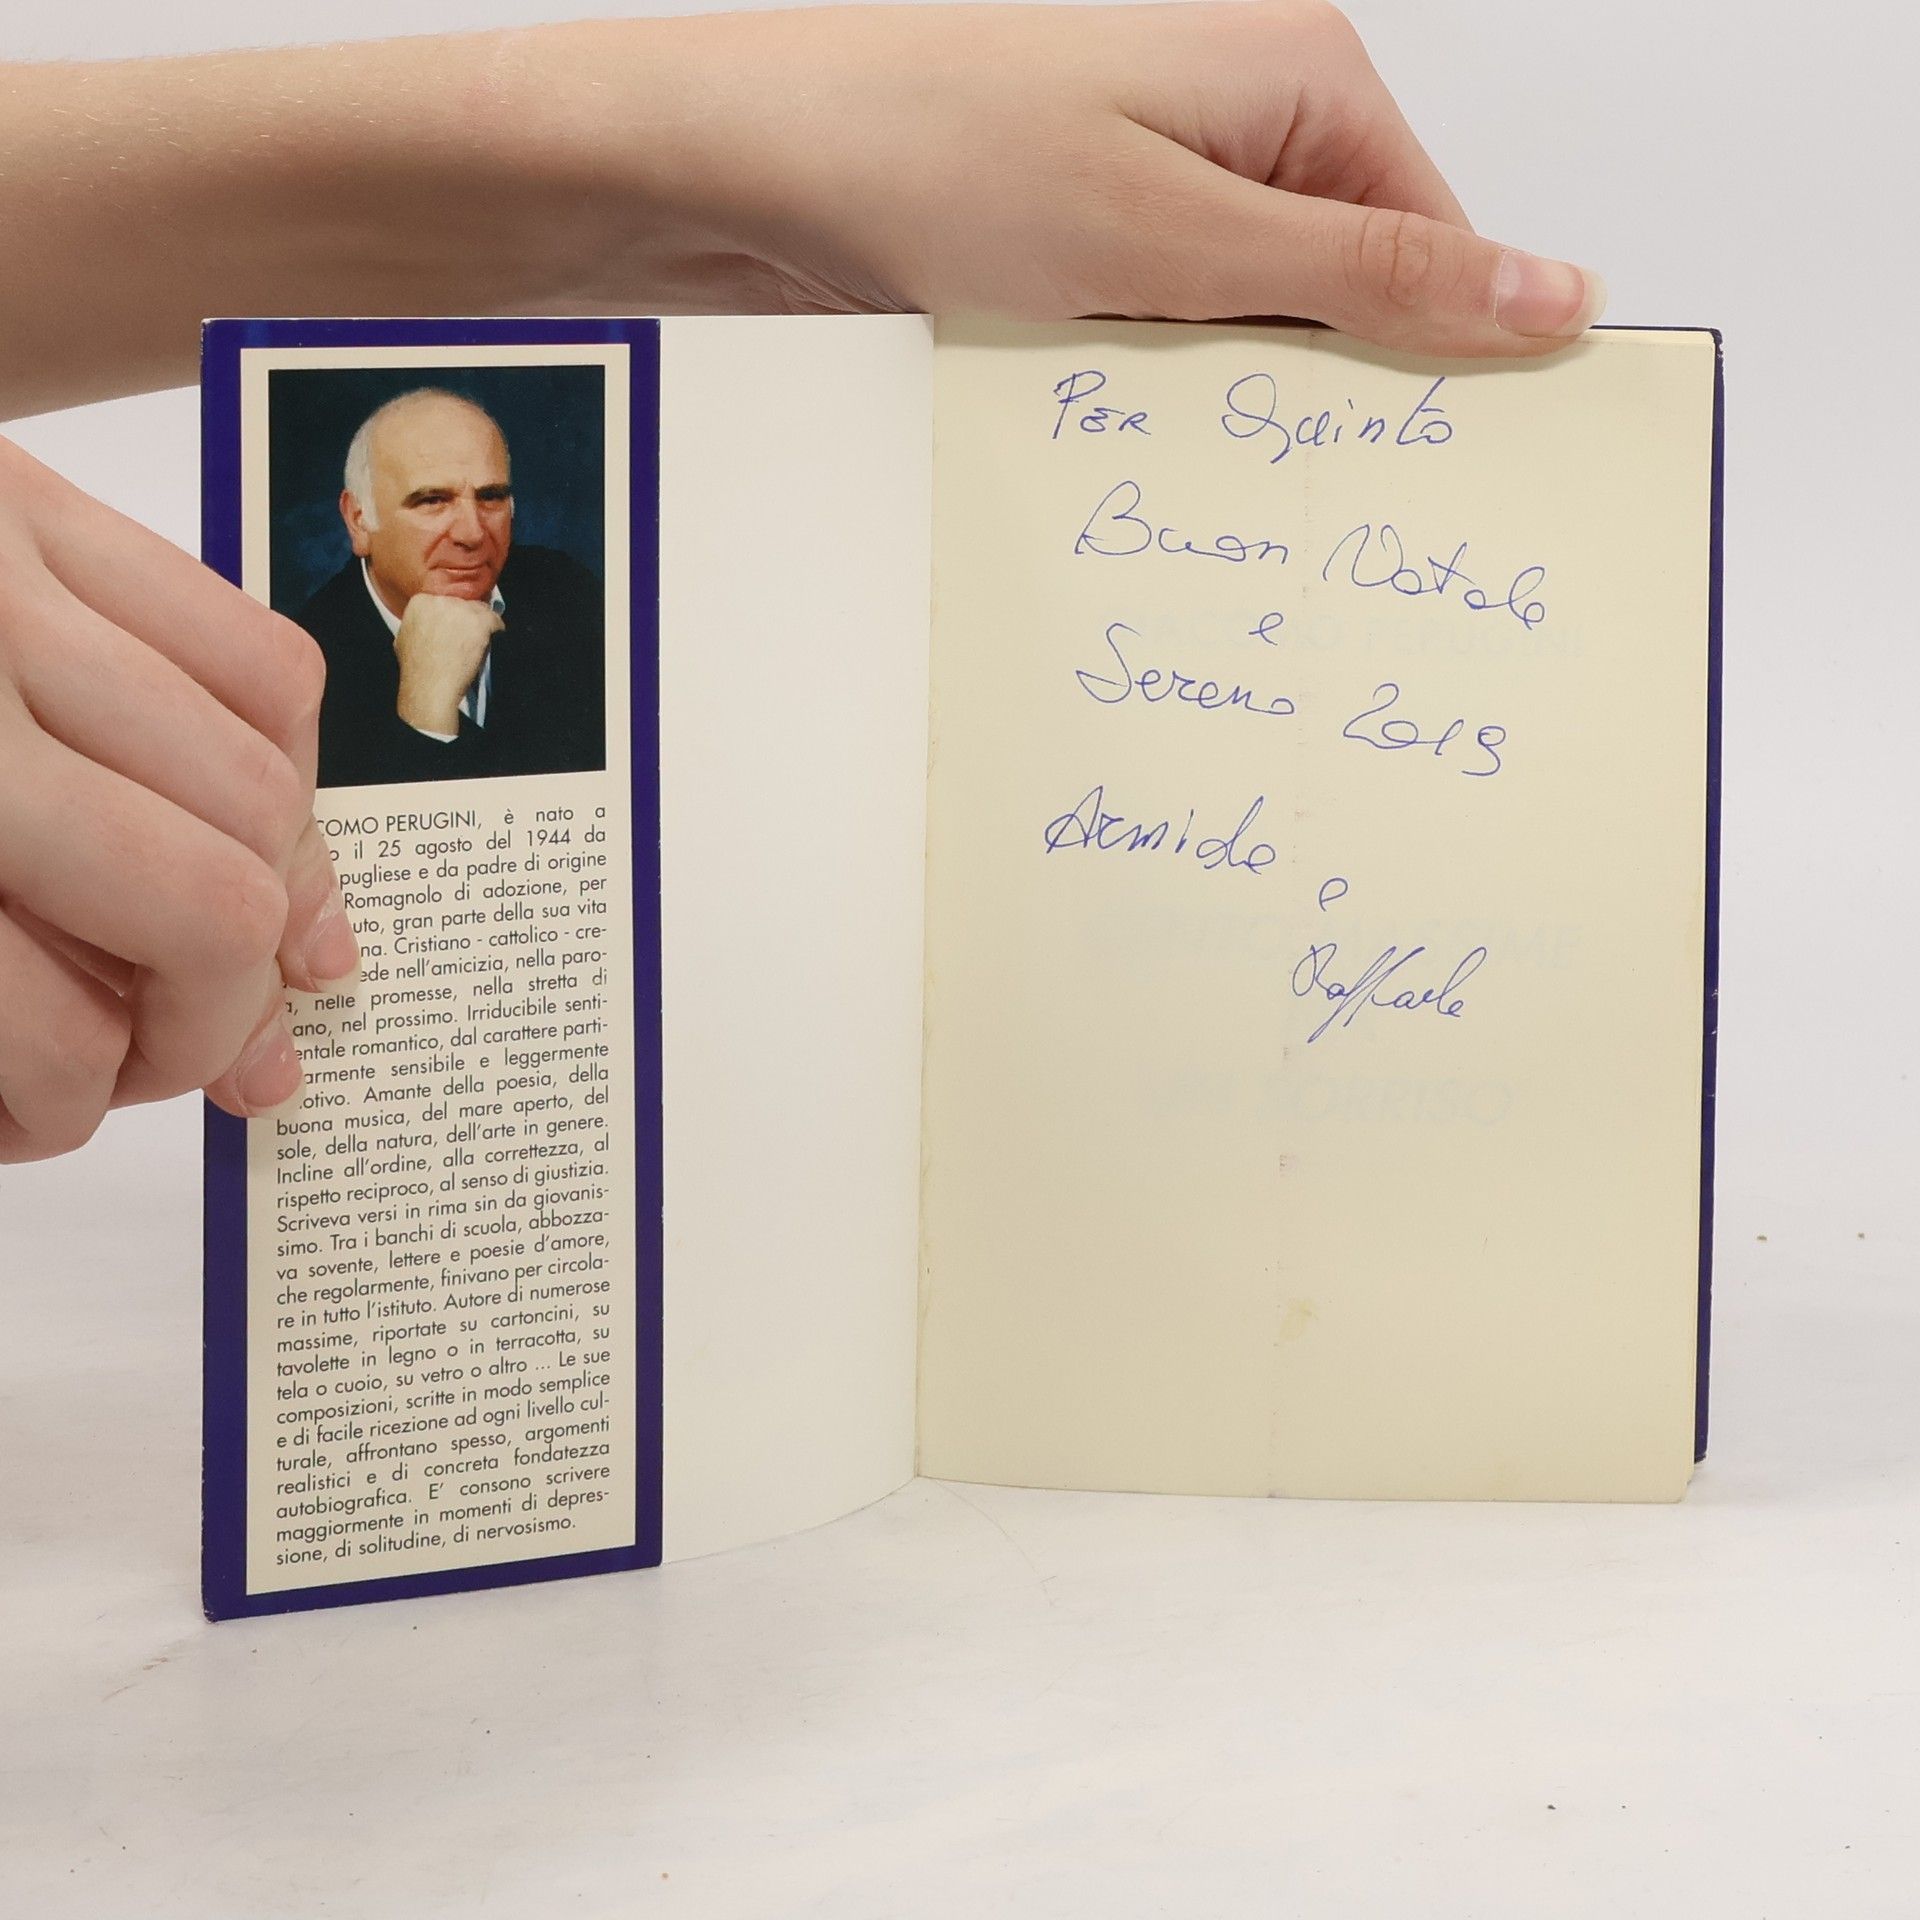 COMO PERUGINI, è nato a
il 25 agosto del 1944 da
pugliese e da padre di origine
Romagnolo di adozione, per
uto, gran parte della sua vita
na. Cristiano - cattolico - cre-
ede nell'amicizia, nella paro-
a, nelle promesse, nella stretta di
ano, nel prossimo. Irriducibile senti-
entale romantico, dal carattere parti-
armente sensibile e leggermente
otivo. Amante della poesia, della
buona musica, del mare aperto, del
sole, della natura, dell'arte in genere.
Incline all'ordine, alla correttezza, al
rispetto reciproco, al senso di giustizia.
Scriveva versi in rima sin da giovanis-
simo. Tra i banchi di scuola, abbozza-
va sovente, lettere e poesie d'amore,
che regolarmente, finivano per circola-
re in tutto l'istituto. Autore di numerose
massime, riportate su cartoncini, su
tavolette in legno o in terracotta, su
tela o cuoio, su vetro o altro ... Le sue
composizioni, scritte in modo semplice
e di facile ricezione ad ogni livello cul-
turale, affrontano spesso, argomenti
realistici e di concreta fondatezza
autobiografica. E' consono scrivere
maggiormente in momenti di depres-
sione, di solitudine, di nervosismo.
PER Quinto
Buon Natale
e
Sereno 2019
Armida
e
Raffaele